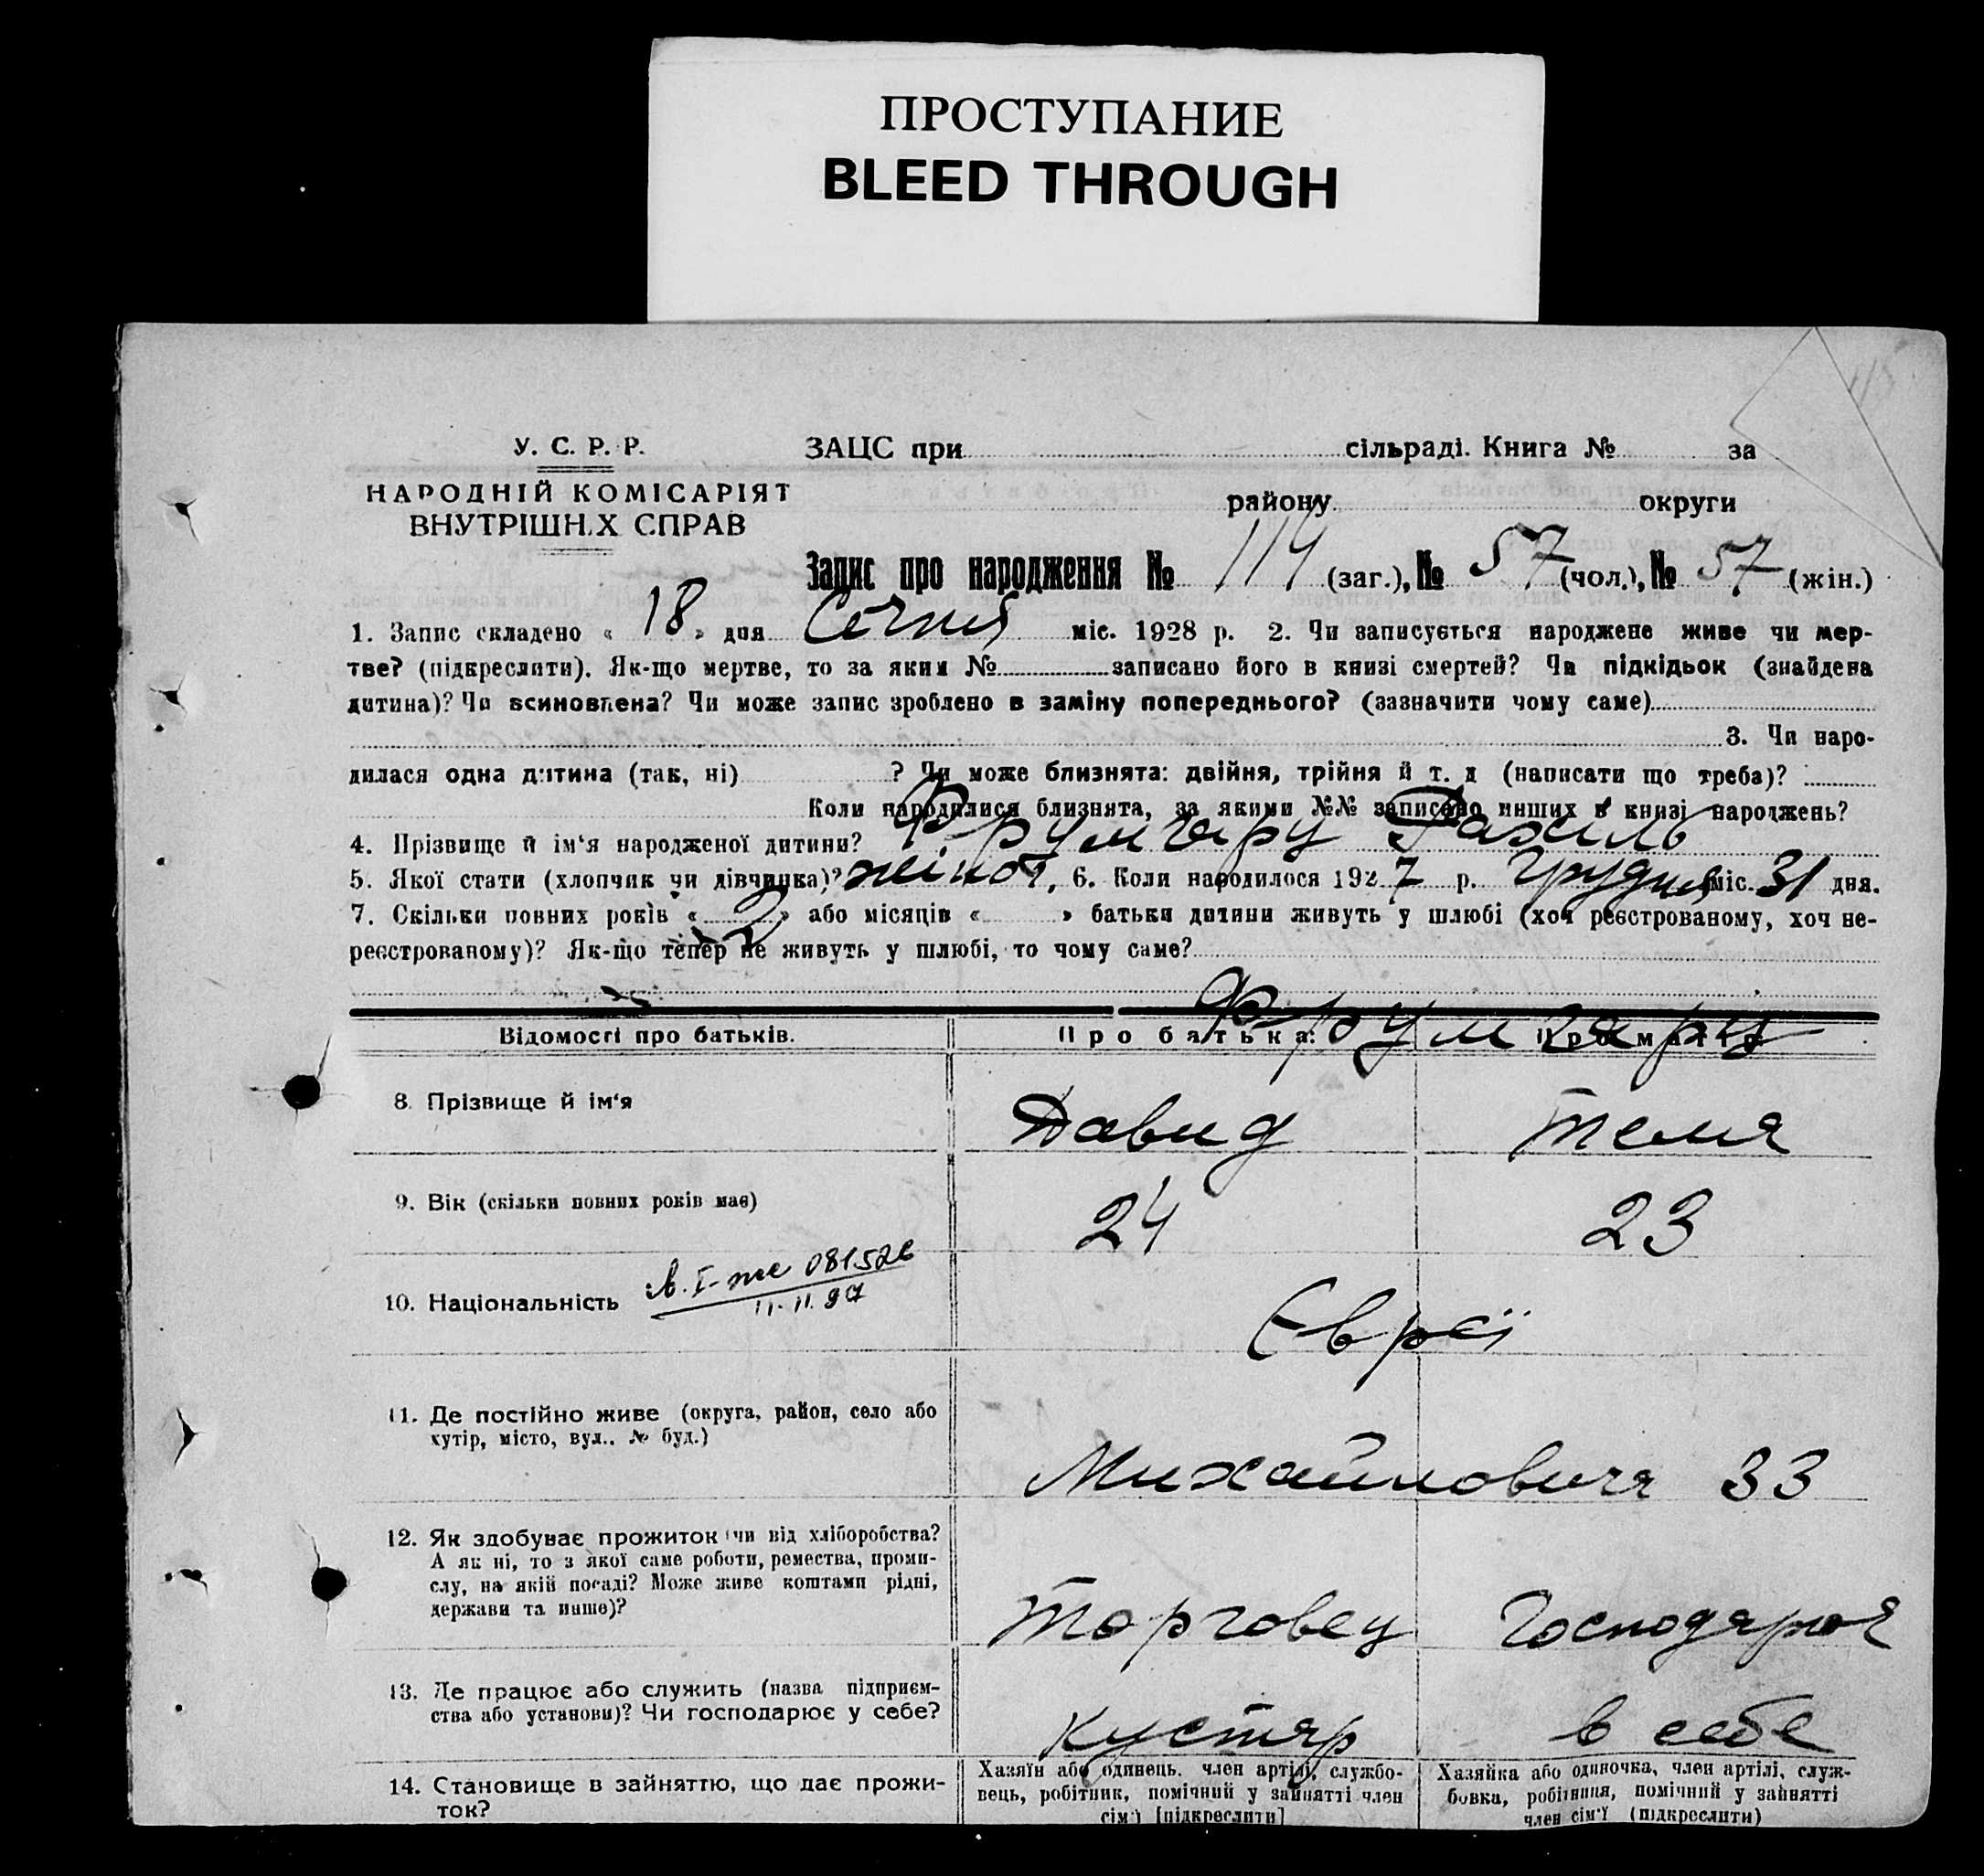 ПРОСТУПАНИЕ
BLEED THROUGH
У. С. Р. Р.
ЗАЦС при сільраді. Книга № за
НАРОДНІЙ КОМІСАРІЯТ
району округи
ВНУТРІШН.Х СПРАВ
Запис про народження № 114 (заг.), № 57 (чол.), № 57 (жін.)
1. Запис складено « 18 » дня Січня міс. 1928 р. 2. Чи записується народжене живе чи мер-
тве? (підкреслити). Як-що мертве, то за яким № записано його в книзі смертей? Чи підкідьок (знайдена
дитина)? Чи всиновлена? Чи може запис зроблено в заміну попереднього? (зазначити чому саме)
3. Чи наро-
дилася одна дитина (так, ні) ? Чи може близнята: двійня, трійня й т. д (написати що треба)?
Коли народилися близнята, за якими №№ записано инших в книзі народжень?
4. Прізвище й ім'я народженої дитини? Фрумгарц Рахиль
5. Якої стати (хлопчик чи дівчинка)? жіноч, 6. Коли народилося 1927 р. Грудня міс. 31 дня.
7. Скільки повних років « 2 » або місяців « » батьки дитини живуть у шлюбі (хоч реєстрованому, хоч не-
реєстрованому)? Як-що тепер не живуть у шлюбі, то чому саме?
Фрумгарц
Відомості про батьків. Про батька: Про матір
8. Прізвище й ім'я Давид Теля
9. Вік (скільки повних років має) 24 23
10. Національність 081526 Євреї
11. Де постійно живе (округа, район, село або
хутір, місто, вул.. № буд.)
Михайловича 33
12. Як здобуває прожиток (чи від хліборобства?
А як ні, то з якої саме роботи, ремества, проми-
слу, на якій посаді? Може живе коштами рідні,
держави та инше)?
Торговец Господарюя
13. Де працює або служить (назва підприєм-
ства або установи)? Чи господарює у себе?
Кустяр в себе
14. Становище в зайняттю, що дає прожи-
ток?
Хазяїн або одинець. член артілі, службо-
вець, робітник, помічний у зайнятті член
сім'ї [підкреслити]
Хазяйка або одиночка, член артілі, служ-
бовка, робітниця, помічний у зайнятті
член сім'ї (підкреслити)